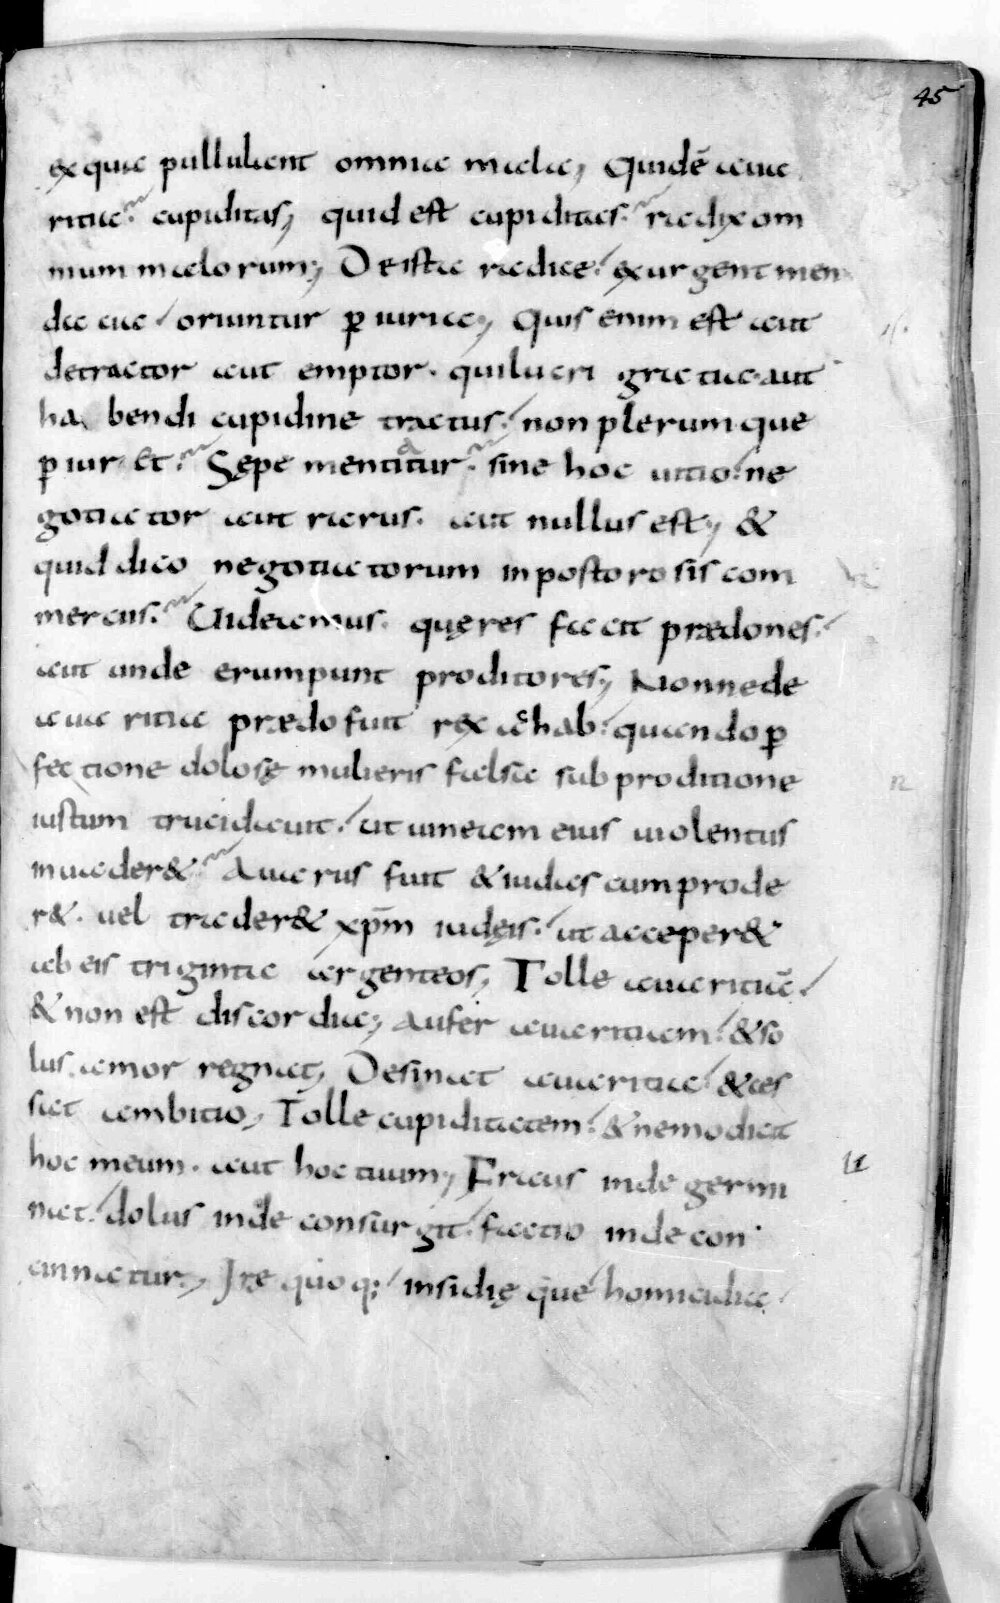 45
ex qua pullulant omnia mala; Quidē aua
ritia? cupiditas; quid est cupiditas? radix om
nium malorum; De ista radice exurgent men
dacia oriuntur ꝑiuria; Quis enim est aut
detractor aut emptor· qui lucri gratia· aut
habendi cupidine tractus· non plerumque
ꝑiuret? Sępe mentiatur? sine hoc uitio ne
gotiator aut rarus· aut nullus est; &
quid dico negotiatorum inpostorosis com
merciis? Uideamus· quę res facit prædones·
aut unde erumpunt proditores; Nonne de
auaritia prædo fuit rex achab· quando ꝑ
fectione dolosę mulieris falsa sub proditione
iustum trucidauit· ut uineam eius uiolentus
inuader&? Auarus fuit & iudas cum prode
r&· uel trader& xp̄m iudęis· ut acceper&
ab eis triginta argenteos; Tolle auaritiā
& non est discordia; Aufer auaritiam· & so
lus amor regnat; Desinat auaritia & ces
sat ambitio; Tolle cupiditatem· & nemo dicit
hoc meum· aut hoc tuum; Fraus inde germi
nat· dolus inde consurgit· factio inde con
cinnatur; Irę quoq; insidię quę homicidia